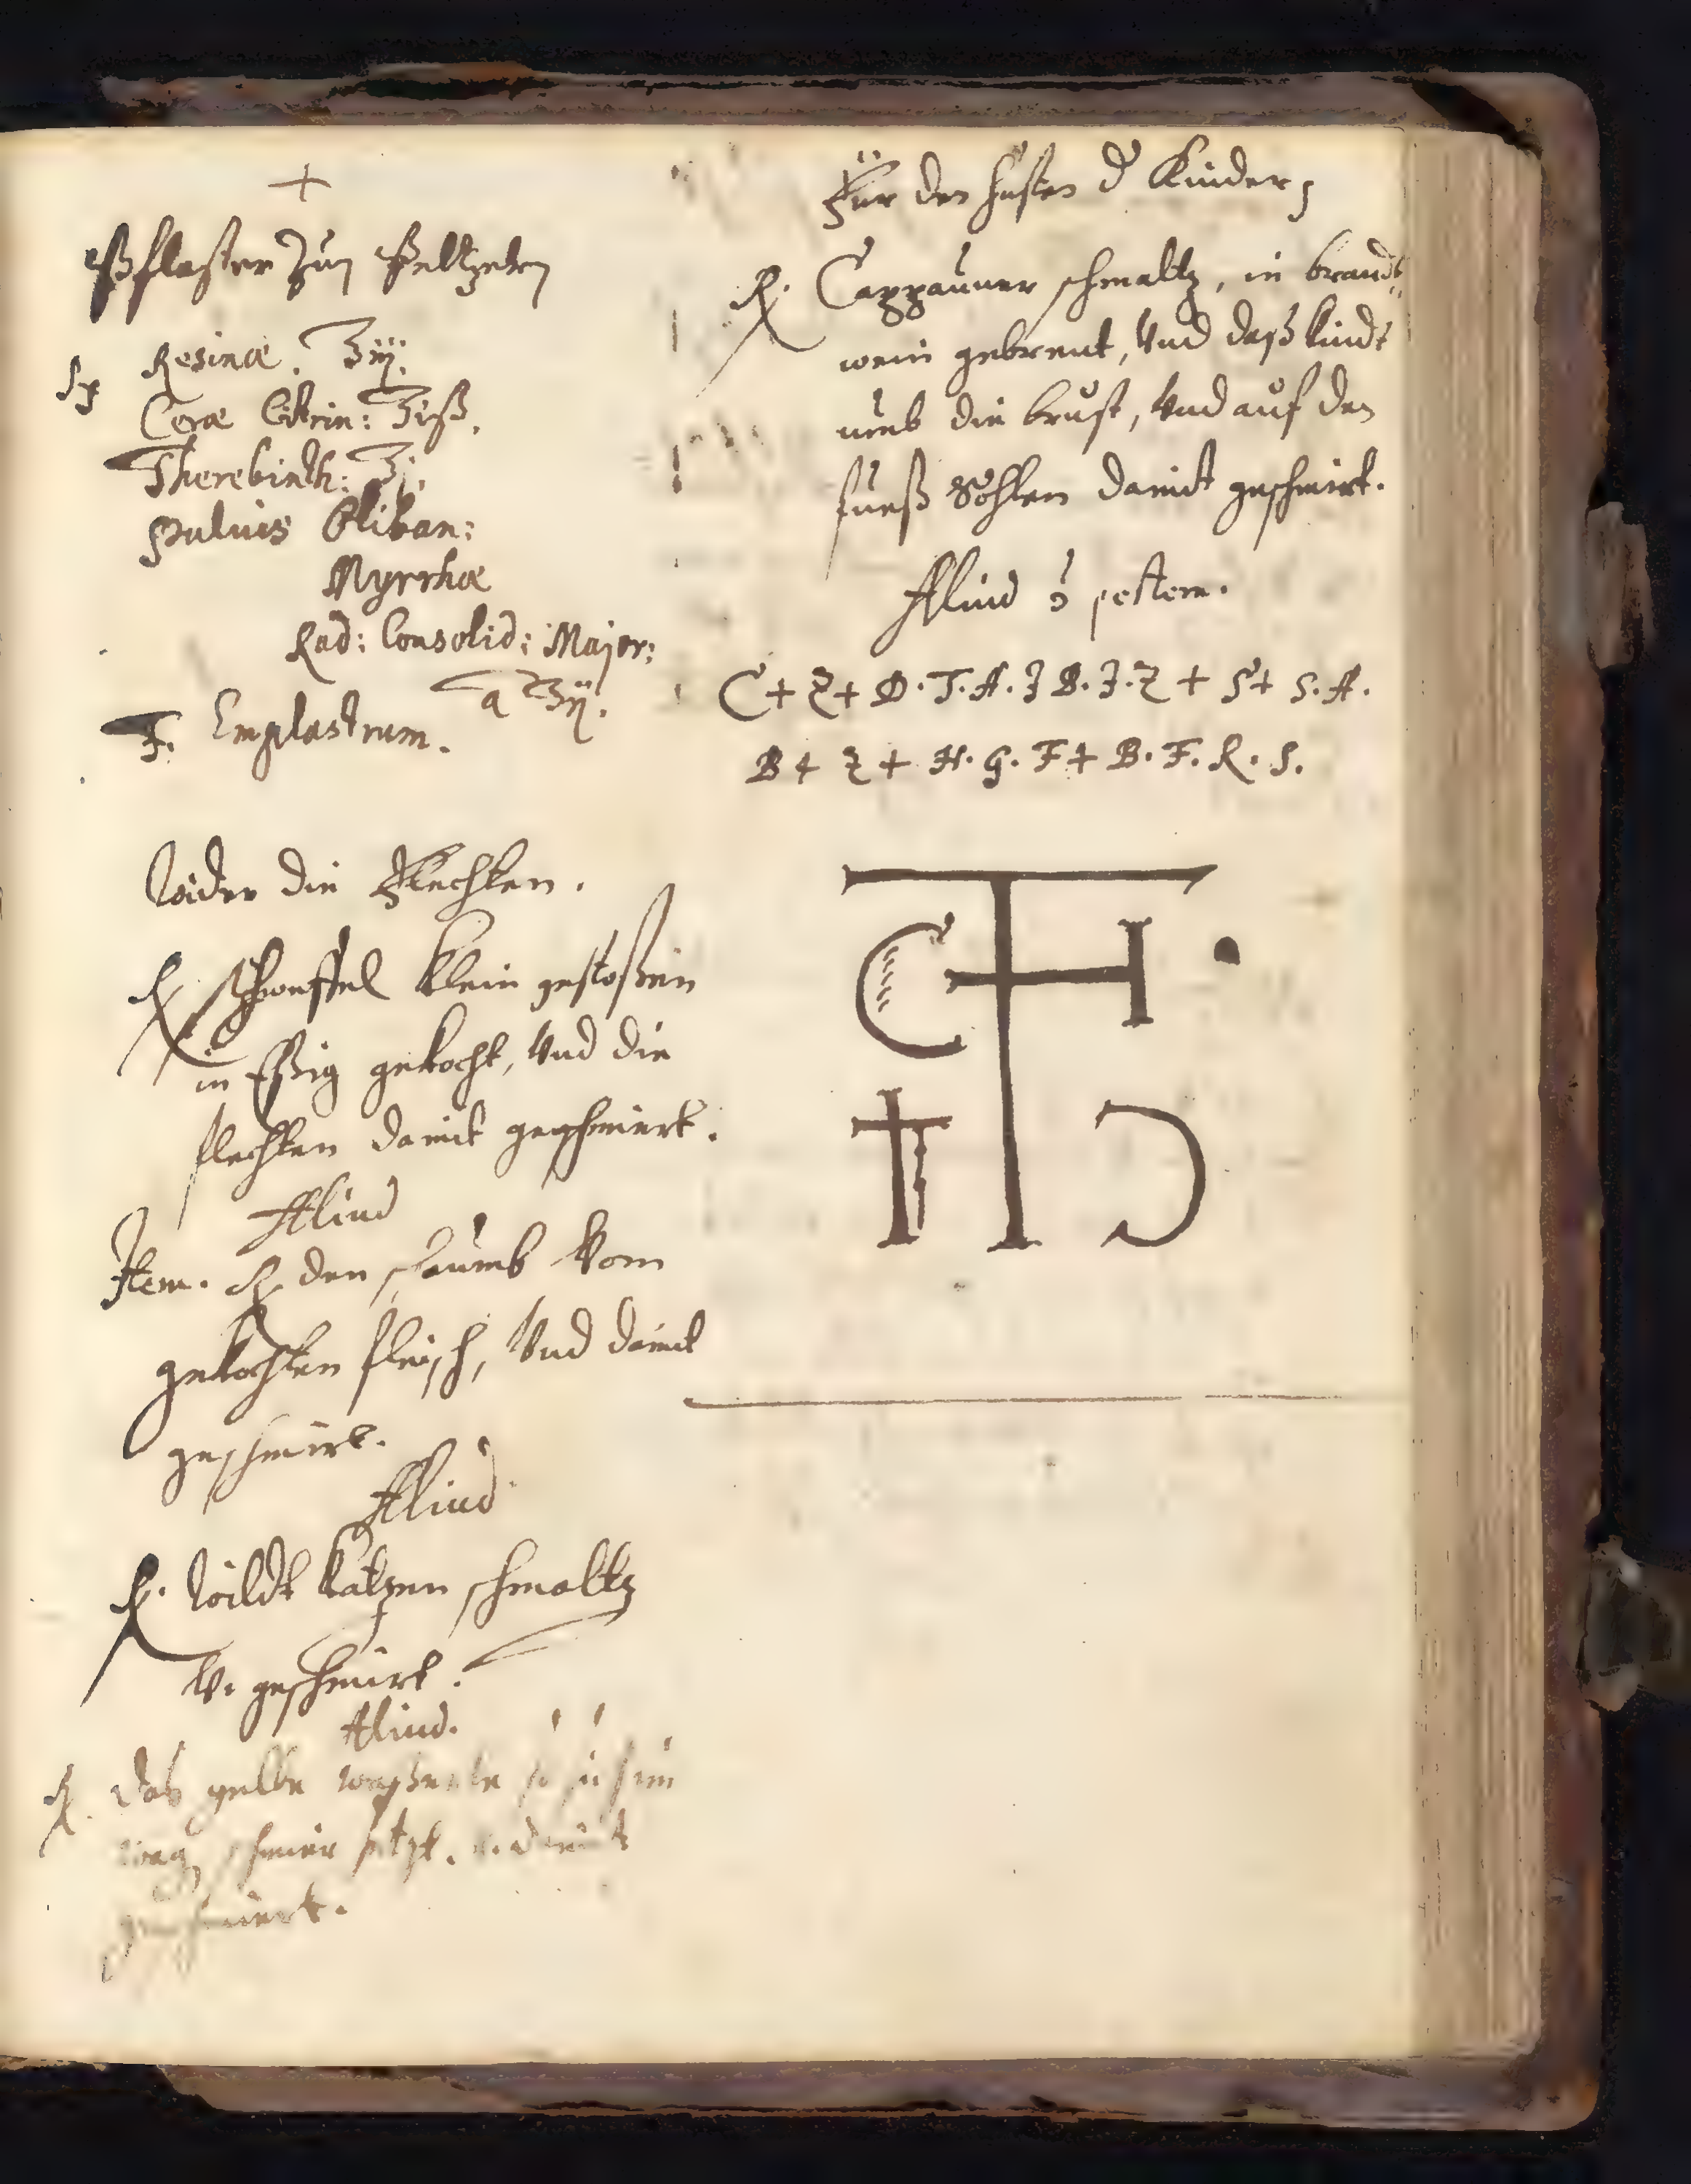 +
Pflaster zum Peltzeln
℞ Resinæ. ℥iij.
Ceræ Citrin: ℥iß.
Therebinth: ℥j.
Pulvis Oliban:
Myrrhæ
Rad: Consolid: Major:
a ʒij.
F. Emplastrum.
Wider die Flechten.
℞ Schweffel klein gestoßen
in Eßig gekocht, Vnd die
flechten damit geschmiert.
Aliud
Item. ℞ den schaumb Vom
gekochten fleisch, Vnd damit
geschmirt.
Aliud
℞. Wildt katzen schmaltz
V. geschmirt.
Aliud.
℞. Das gelbe
schmier damit
geschmiert.
Für den husten d Kinder,
℞. Cappauner schmaltz, in brandt
wein gebrent, Vnd daß kindt
umb die brust, Vnd auf den
fueß Sohlen damit geschmirt.
Aliud pestem.
C + Z + D. J. A. J B. J. Z + S + S. A.
B + Z + H. G. F + B. F. R. S.
C T H .